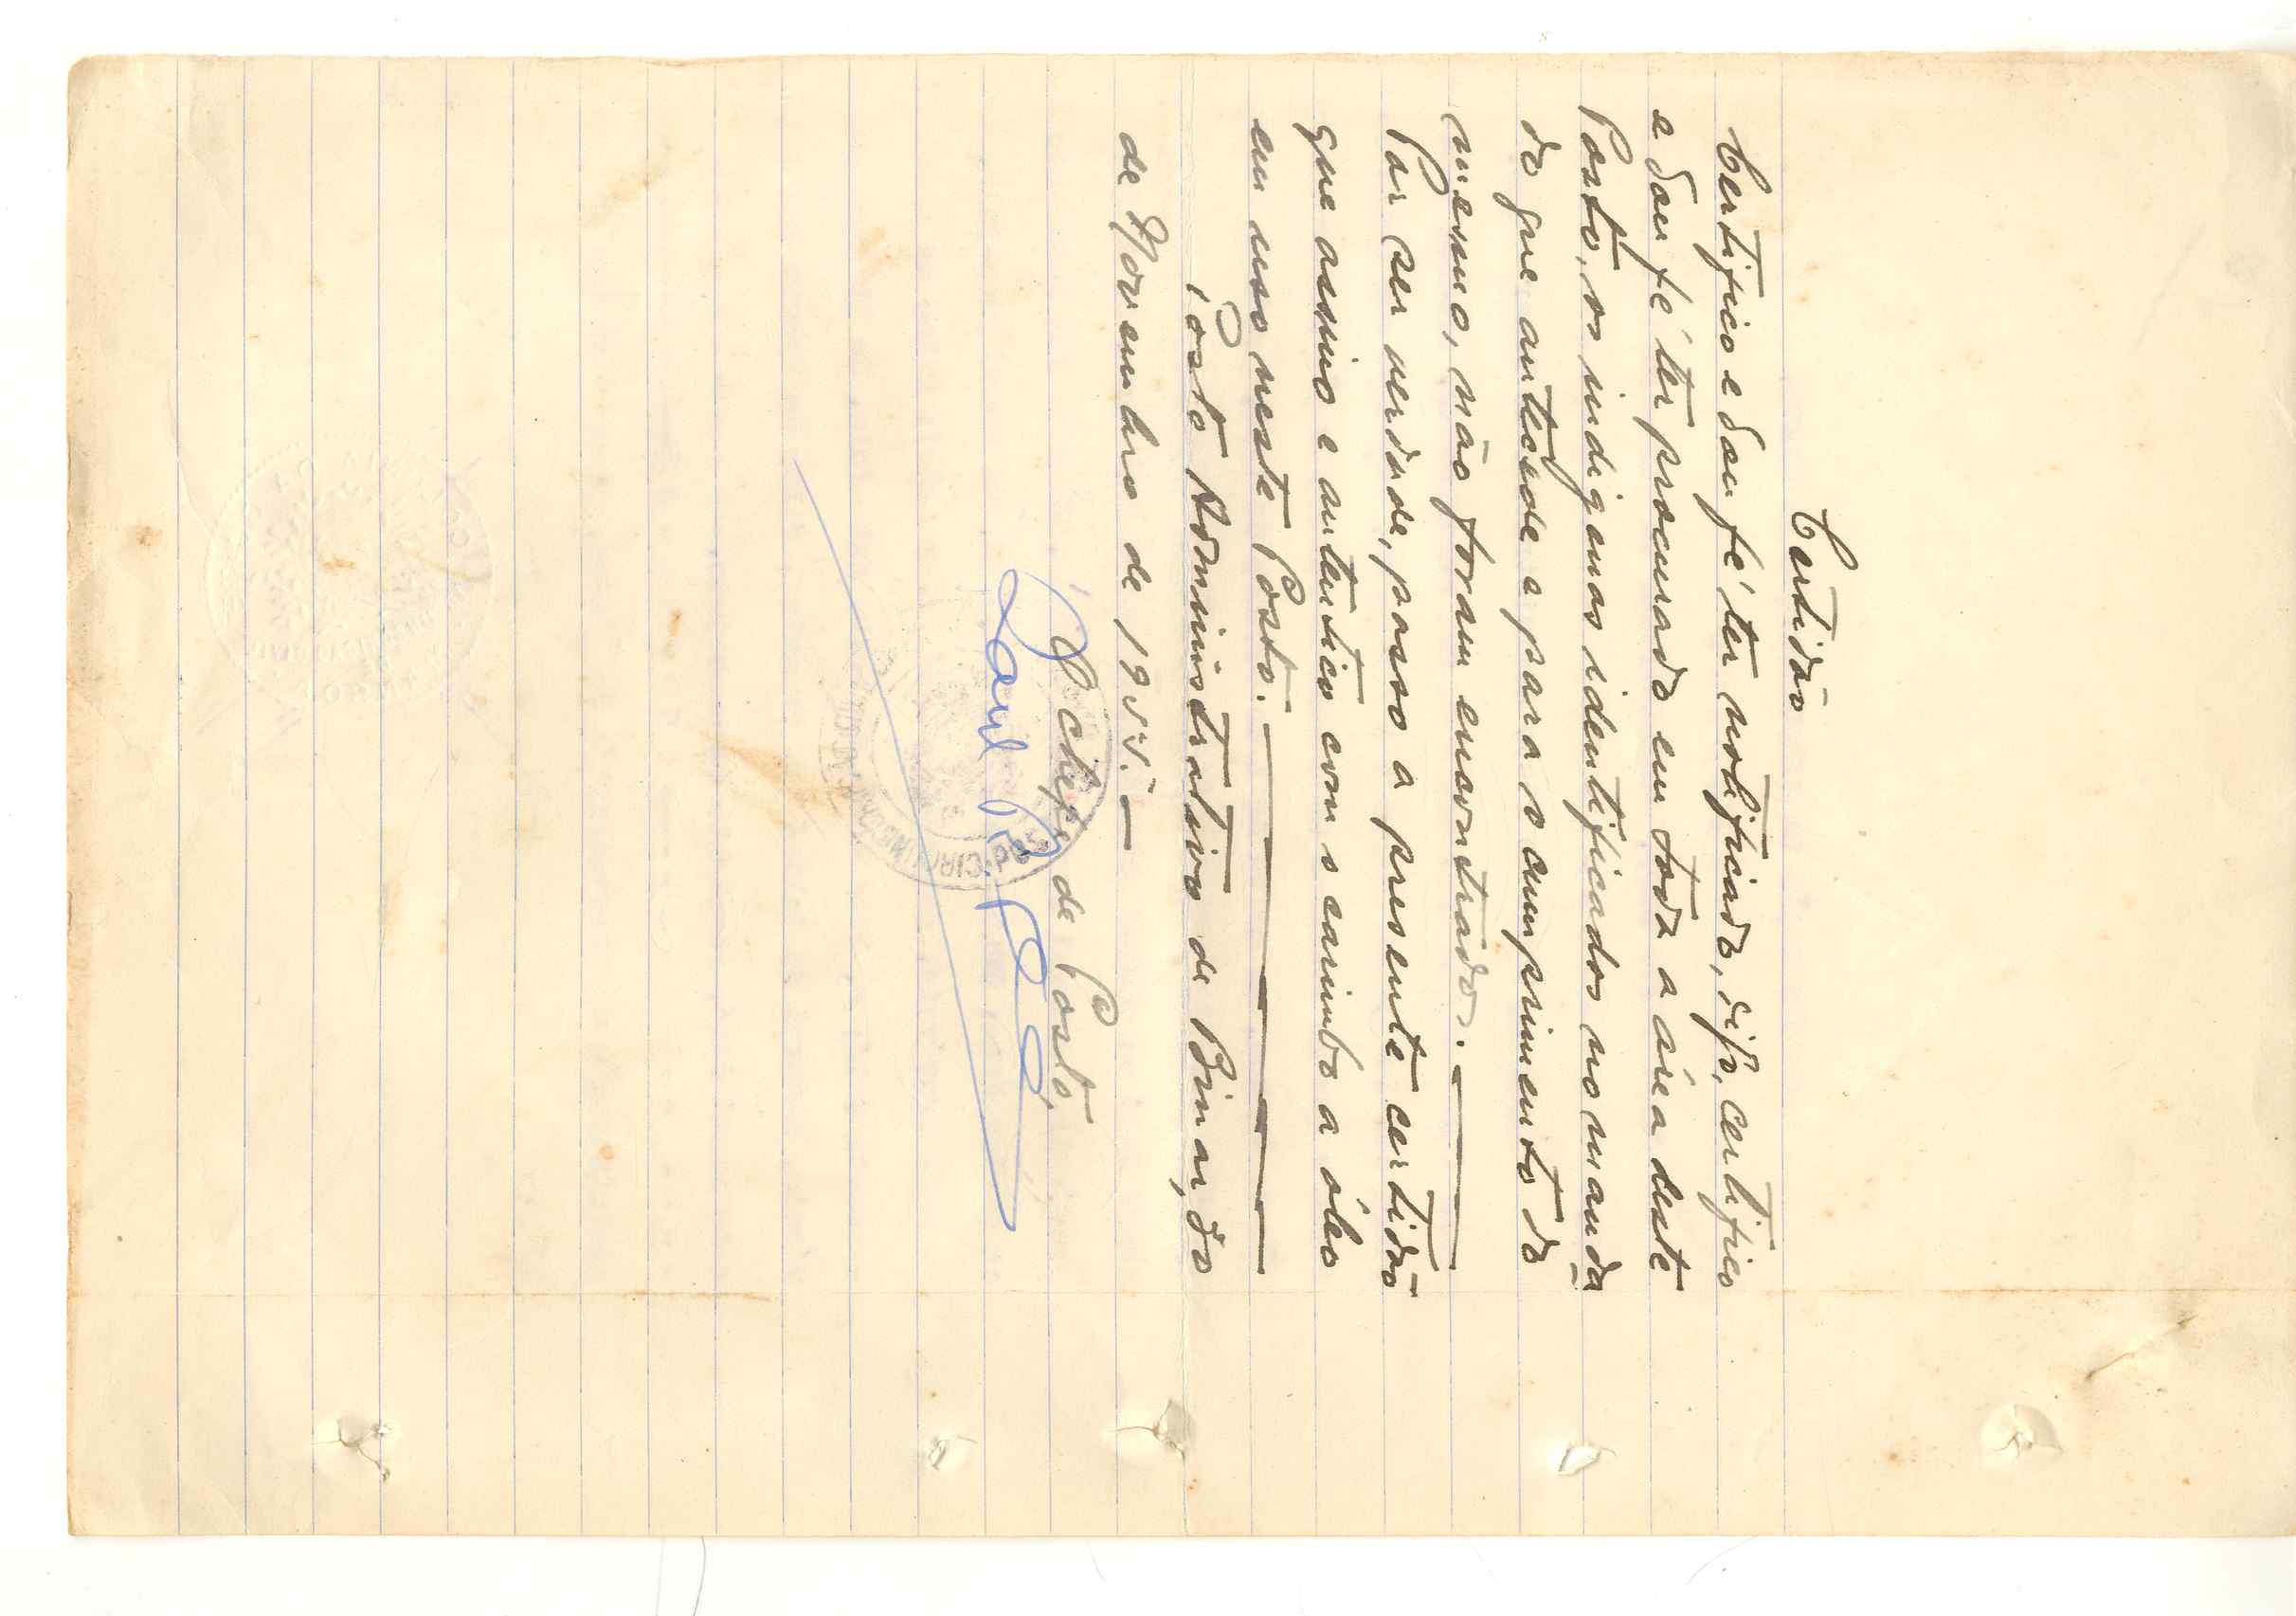 Certidão
Certifico e dou fé ter notificado, digo, certifico
e dou fé ter procurado em toda a área deste
Posto, os indigenas identificados no manda
do que antecede e para o cumprimento do
mesmo, não foram encontrados. —
Por ser verdade, passo a presente certidão
que assino e autentico com o carimbo a óleo
em uso neste Posto. —
Posto Administrativo de Binar, do
de Novembro de 1955. —
O chefe de Posto,